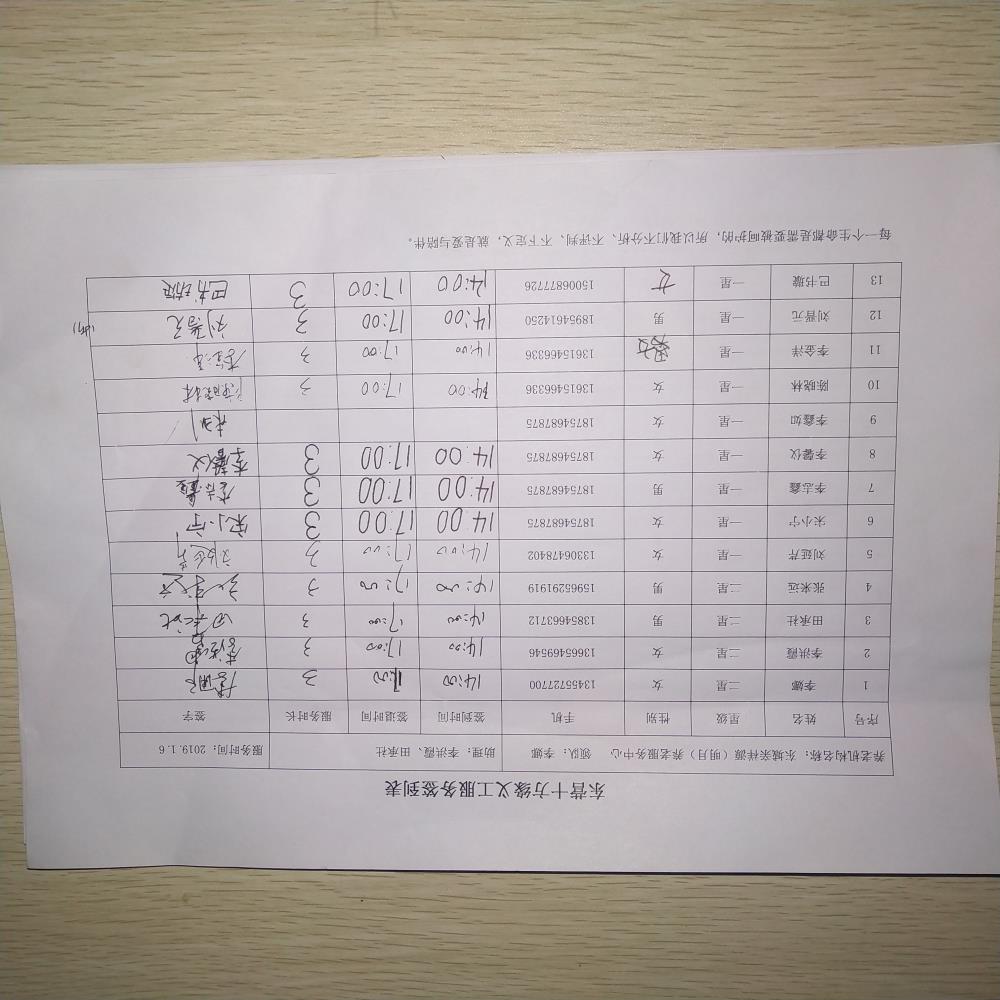 东营十方缘义工服务签到表
养老机构名称：东城亲祥源（明月）养老服务中心 领队：李娜 助理：李洪霞、田承社 服务时间：2019.1.6
序号 姓名 星级 性别 手机 签到时间 签退时间 服务时长 签字
1 李娜 二星 女 13455727700 14:00 17:00 3
2 李洪霞 二星 女 13665469546 14:00 17:00 3 李洪霞
3 田承社 二星 男 13854663712 14:00 17:00 3 田承社
4 张来远 二星 男 15965291919 14:00 17:00 3
5 刘延芹 一星 女 13306478402 14:00 17:00 3 刘延芹
6 宋小宁 一星 女 18754687875 14:00 17:00 3 宋小宁
7 李志鑫 一星 男 18754687875 14:00 17:00 3 李志鑫
8 李馨仪 一星 女 18754687875 14:00 17:00 3 李馨仪
9 李鑫如 一星 女 18754687875 未到
10 陈晓林 一星 女 13615466336 14:00 17:00 3 陈晓林
11 李金洋 一星 13615466336 14:00 17:00 3 李金洋
12 刘晋元 一星 男 18954614250 14:00 17:00 3 刘晋元
13 巴书璇 一星 女 15006877726 14:00 17:00 3 巴书璇
每一个生命都是需要被呵护的，所以我们不分析、不评判、不下定义，就是爱与陪伴。